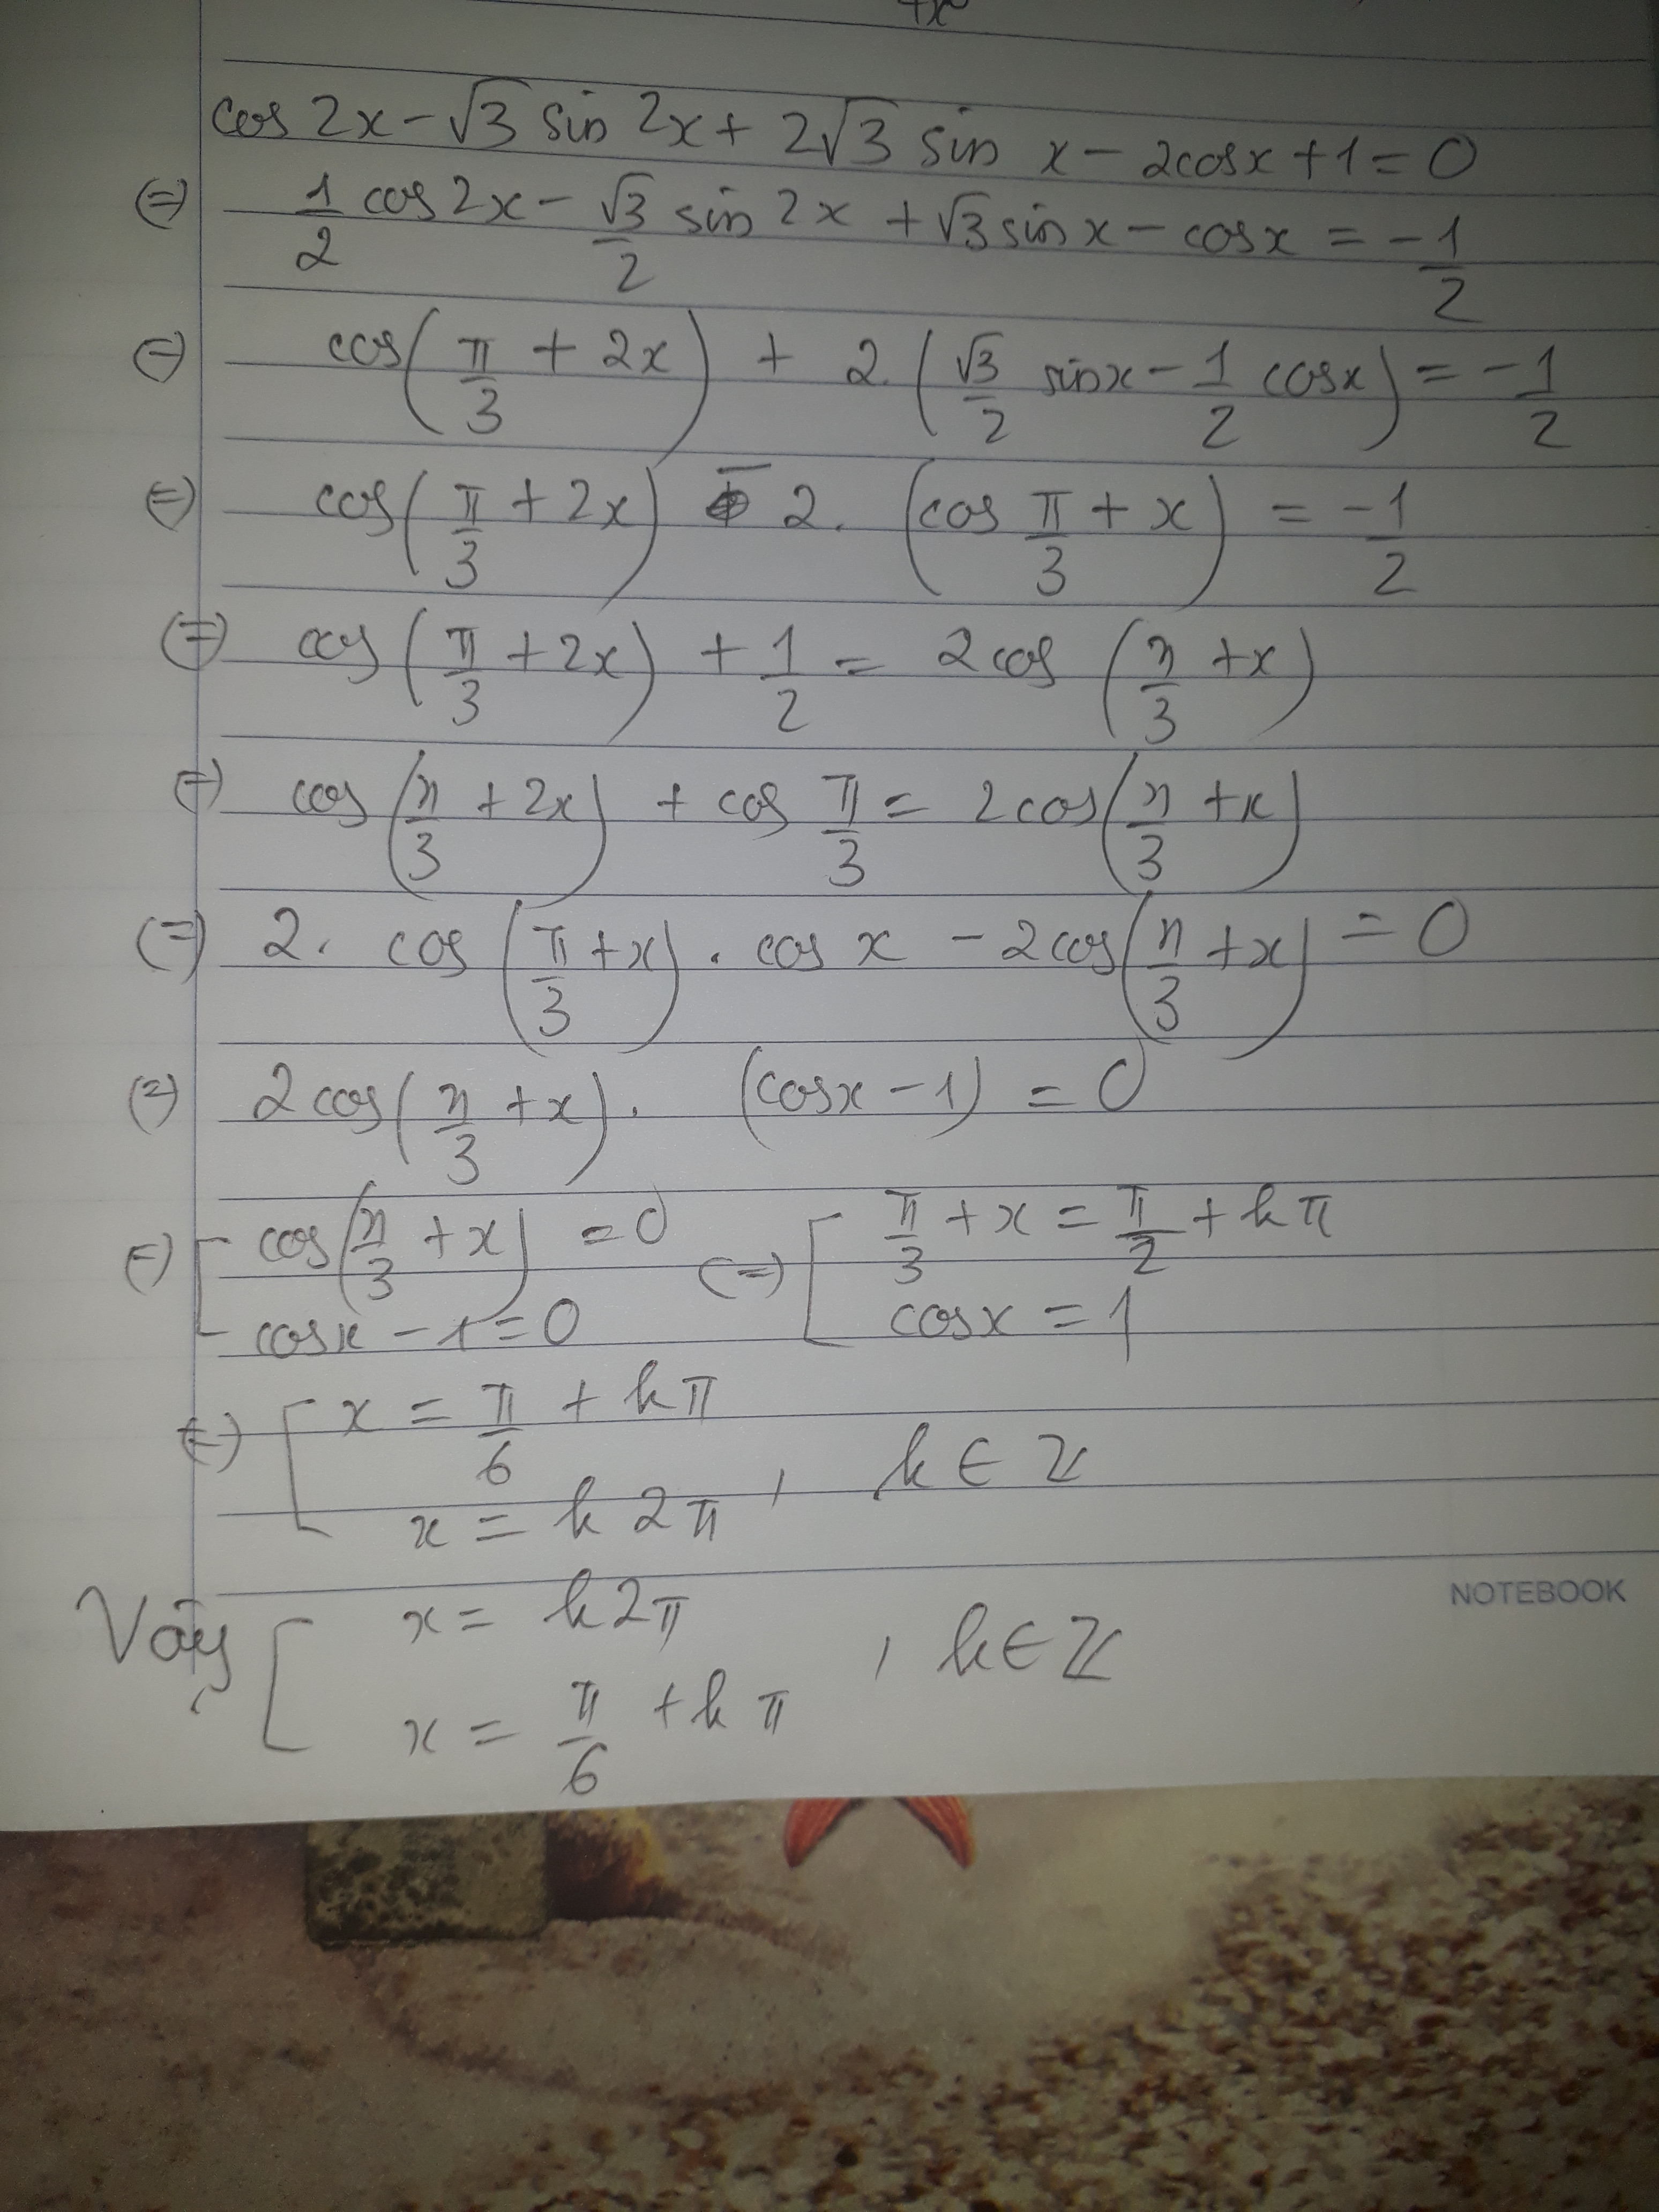 cos 2x - √3 sin 2x + 2√3 sin x - 2cosx + 1 = 0
(=) 1/2 cos2x - √3/2 sin 2x + √3 sinx - cosx = -1/2
(=) cos(π/3 + 2x) + 2.(√3/2 sinx - 1/2 cosx) = -1/2
(=) cos(π/3 + 2x) - 2.(cos π/3 + x) = -1/2
(=) cos(π/3 + 2x) + 1/2 = 2cos(π/3 + x)
(=) cos(π/3 + 2x) + cos π/3 = 2cos(π/3 + x)
(=) 2. cos(π/3 + x) . cos x - 2cos(π/3 + x) = 0
(=) 2cos(π/3 + x). (cosx - 1) = 0
(=) [ cos(π/3 + x) = 0 (=) [ π/3 + x = π/2 + kπ
cosx - 1 = 0 cosx = 1
(=) [ x = π/6 + kπ
x = k2π , k ∈ Z
Vậy [ x = k2π , k ∈ Z
x = π/6 + kπ
NOTEBOOK